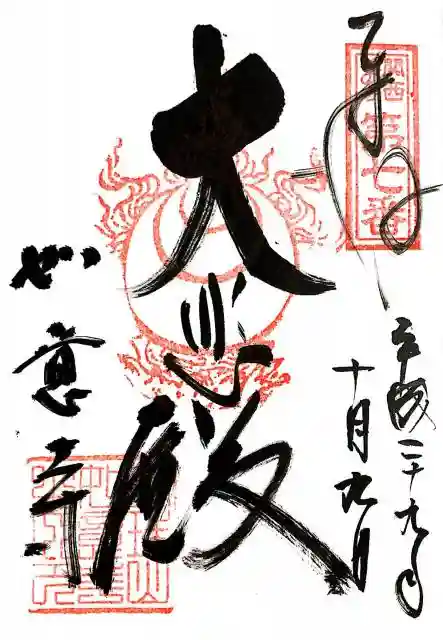 奉拝
関西
第七番
平成二十九年
十月九日
大悲殿
如意寺